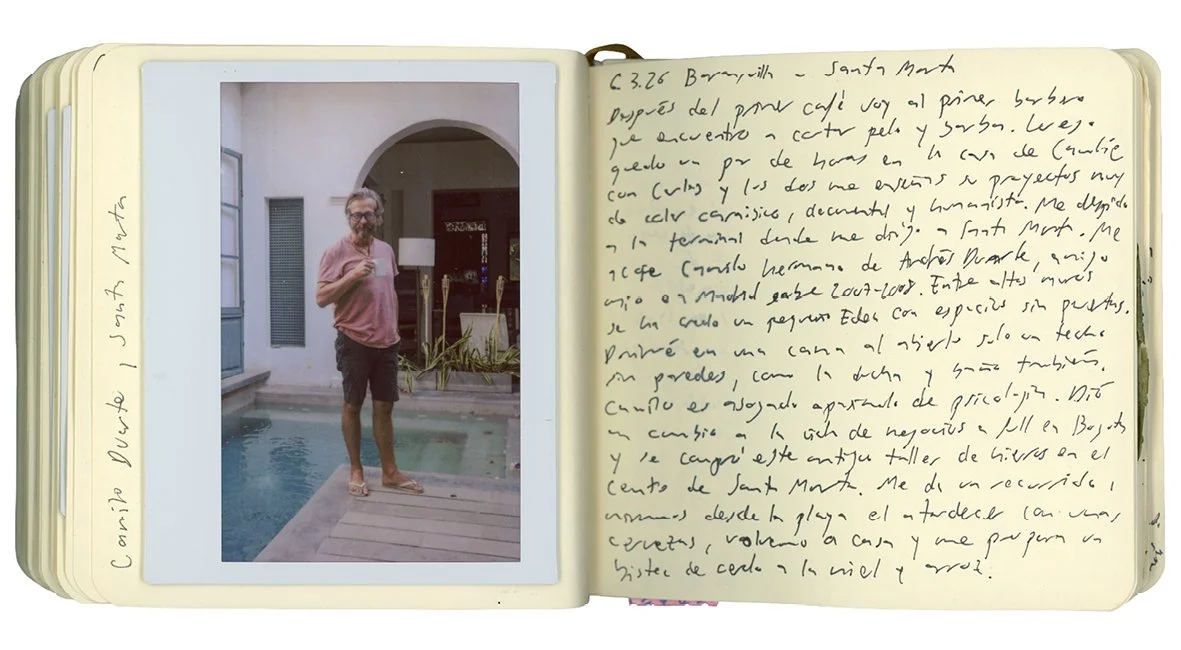 Camilo Duarte, Santa Marta
6.3.26 Barranquilla - Santa Marta
Después del primer café voy al primer barbero
que encuentro a cortar pelo y barba. Luego
quedo un par de horas en la casa de
con Carlos y los dos me enseñan su proyectos muy
de color, documental y humanista. Me despido
a la terminal desde me dirijo a Santa Marta. Me
acoge Camilo hermano de Andrés Duarte, amigo
mío en Madrid entre 2007-2008. Entre altos muros
se ha creado un pequeño Eden con espacios sin puertas.
Dormiré en una cama al abierto solo un techo
sin paredes, como la ducha y baño también.
Camilo es abogado apasionado de psicología. Dió
un cambio a la vida de negocios a full en Bogota
y se compró este antiguo taller de hierros en el
centro de Santa Marta. Me da un recorrido,
miramos desde la playa el atardecer con unas
cervezas, volvemo a casa y me prepara un
bistec de cerdo a la miel y arroz.